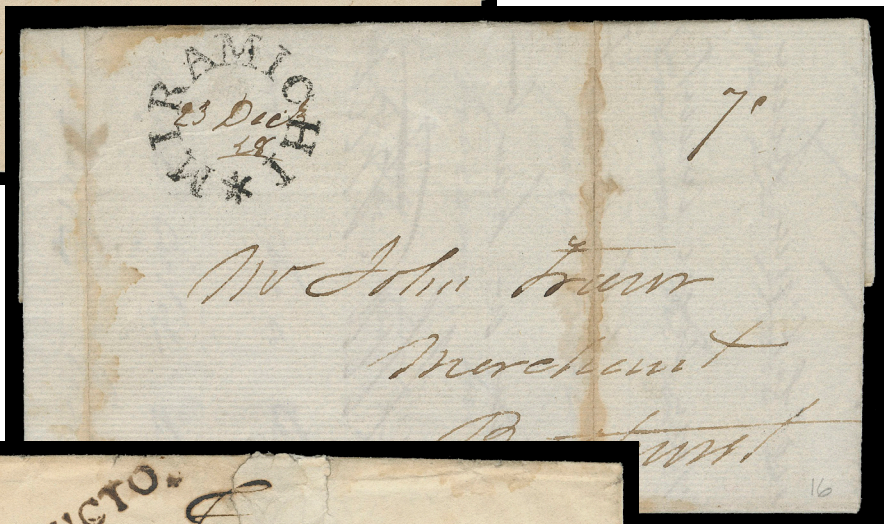 MIRAMICHI *
23 Decr
28
7
Mr John Fraser
Merchant
B urst
16
UCTO